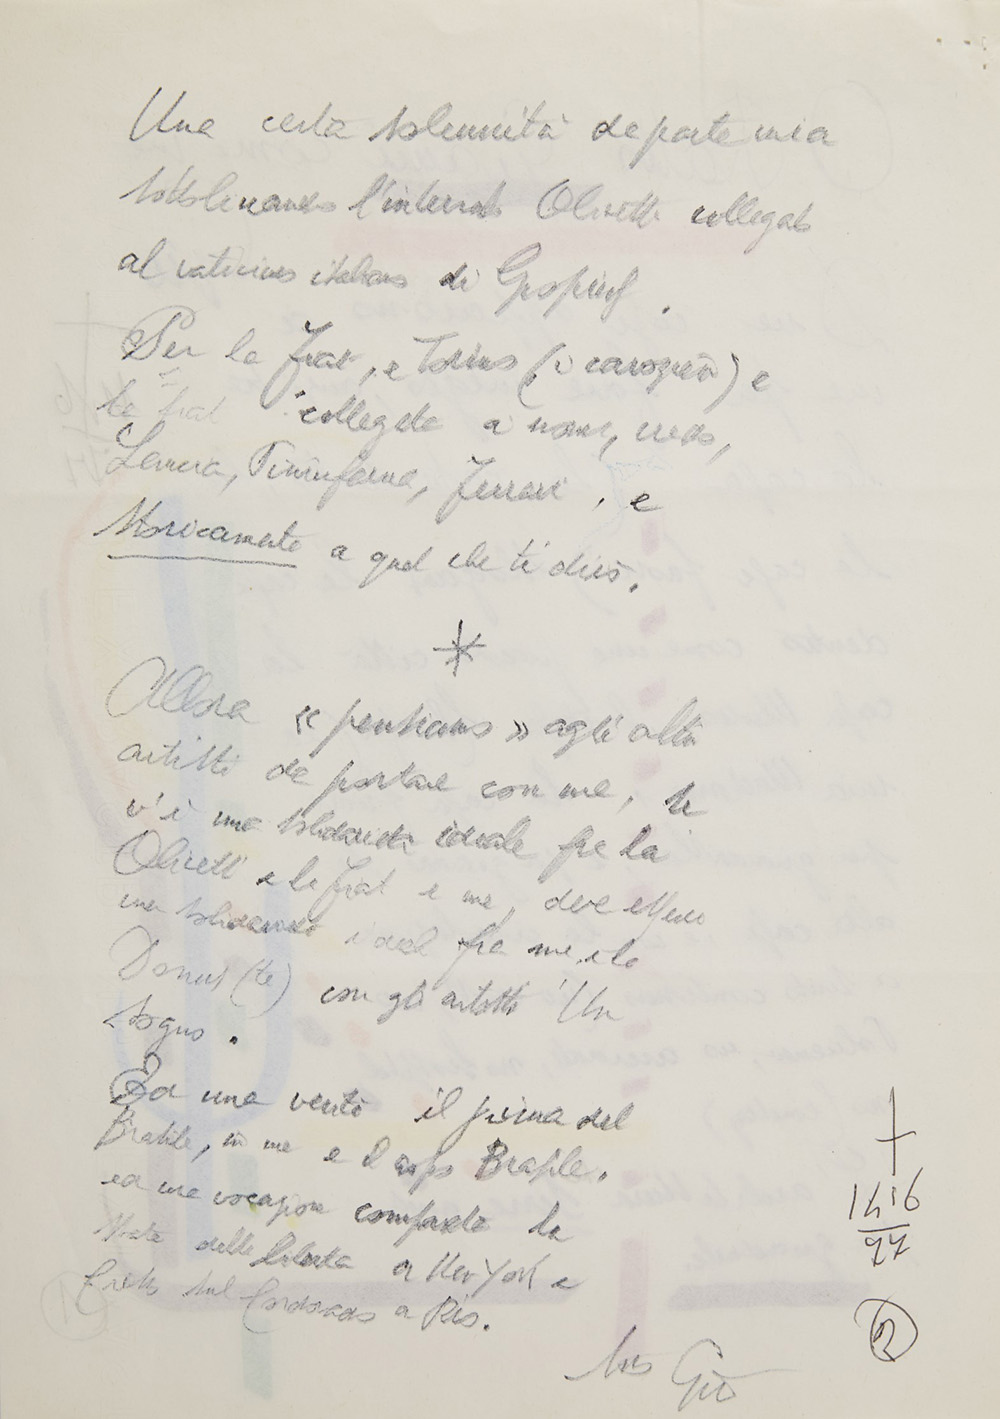 Una certa solennità da parte mia
sottolineando l'interesse Olivetti collegato
al italiano di
Per la Fiat, e Torino ( ) e
la Fiat collegata a nomi, credo,
Lancia, Pininfarina, Ferrari, e
storicamente a quel che ti dirò.
*
Allora « pensiamo » agli altri
artisti da portare con me, se
v'è una solidarietà ideale fra la
Olivetti e la Fiat e me, deve essere
una solidarietà ideal fra me e la
Domus (te) con gli artisti. Un
sogno.
Ed una verità il prima del
Brasile, in me e il dopo Brasile.
ed una vocazione la
delle libertà a New York e
Cristo sul Corcovado a Rio.
tuo Giò
1616
97
2